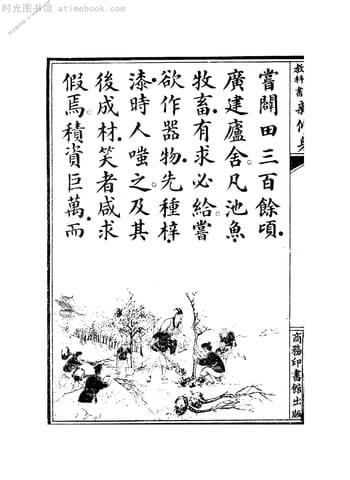 时光图书馆 www.atimebook.com
教科書
嘗闢田三百餘頃、
廣建廬舍。凡池魚、
牧畜、有求必給。嘗
欲作器物、先種梓
漆、時人嗤之。及其
後成材、笑者咸求
假焉。積資巨萬、而
商務印書館出版